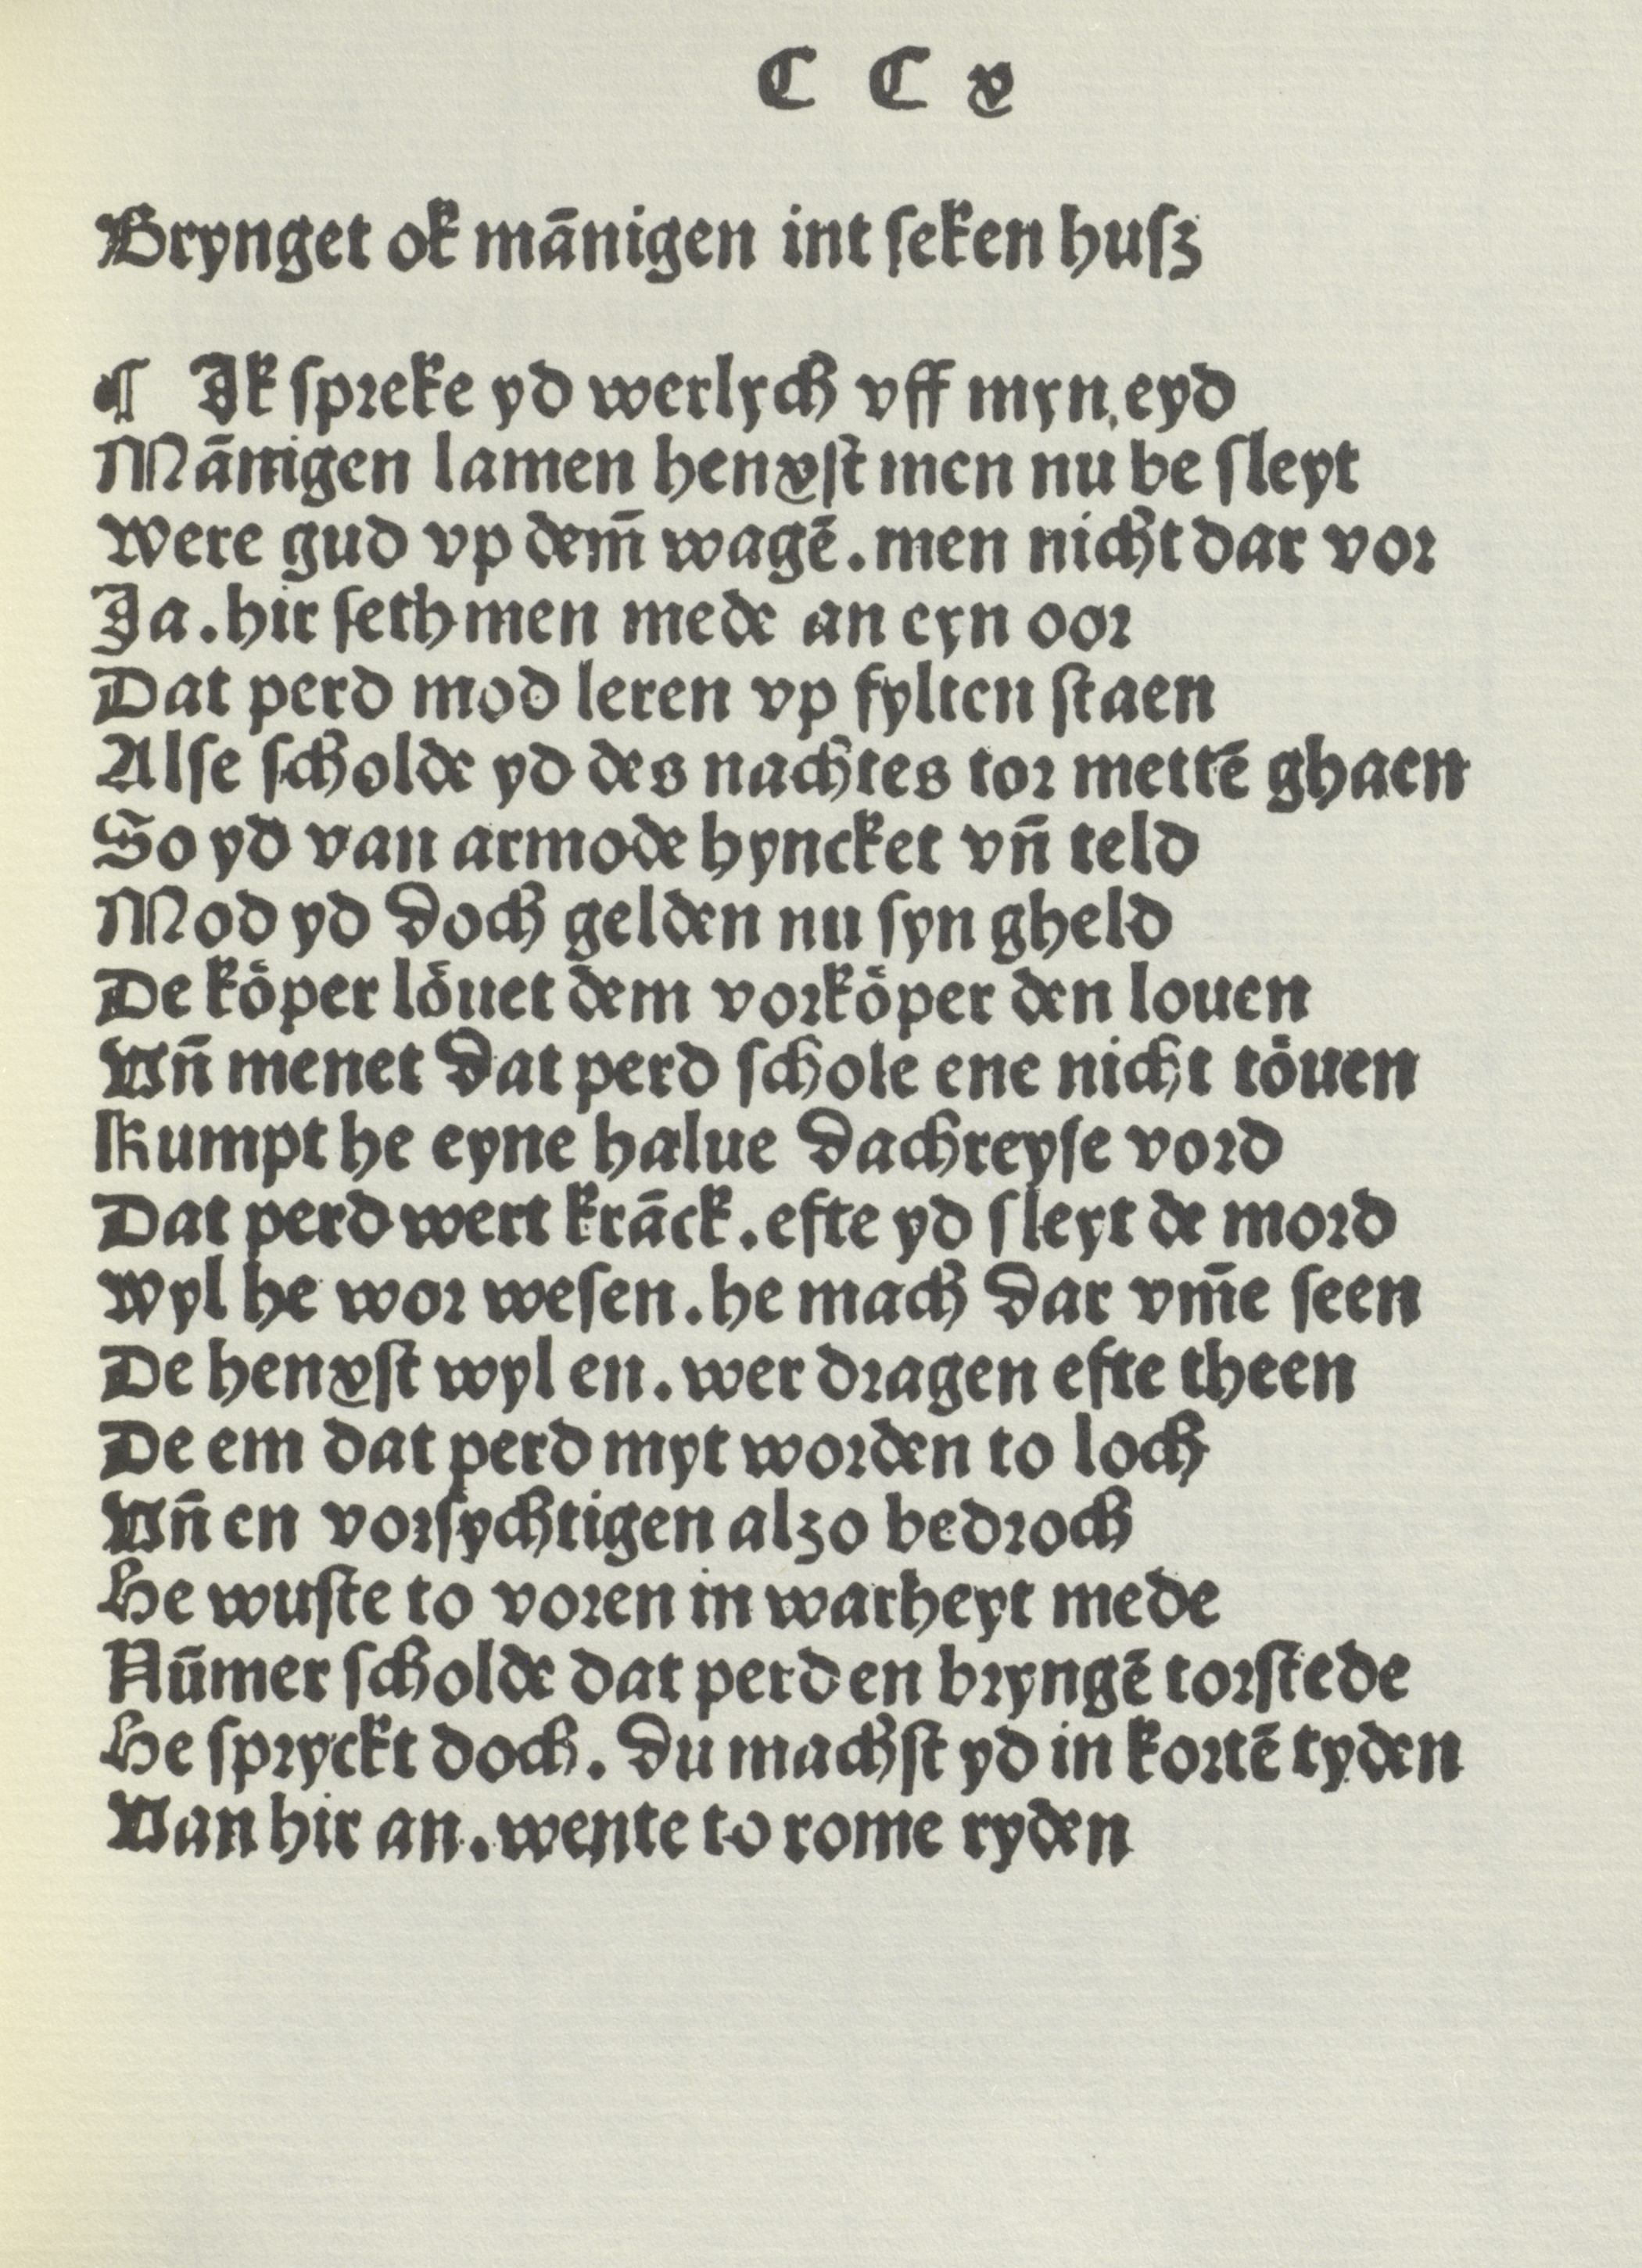 C C x
Brynget ok mānigen int ſeken huſz
¶ Ik ſpreke yd werlych vff myn eyd
Mānigen lamen henxſt men nu be ſleyt
Were gud vp dem̄ wagē. men nicht dar vor
Ja. hir ſeth men mede an eyn oor
Dat perd mod leren vp fylten ſtaen
Alſe ſcholde yd des nachtes tor mettē ghaen
So yd van armode hyncket vn̄ teld
Mod yd doch gelden nu ſyn gheld
De köper löuet dem vorköper den louen
Vn̄ menet dat perd ſchole ene nicht töuen
Kumpt he eyne halue dachreyſe vord
Dat perd wert krāck. efte yd ſleyt de mord
Wyl he wor weſen. he mach dar vm̄e seen
De henxſt wyl en. wer dragen efte theen
De em dat perd myt worden to loch
Vn̄ en vorſychtigen alzo bedroch
He wuſte to voren in warheyt mede
Nūmer ſcholde dat perd en bryngē torſtede
He ſpryckt doch. du machſt yd in kortē tyden
Van hir an. wente to rome ryden